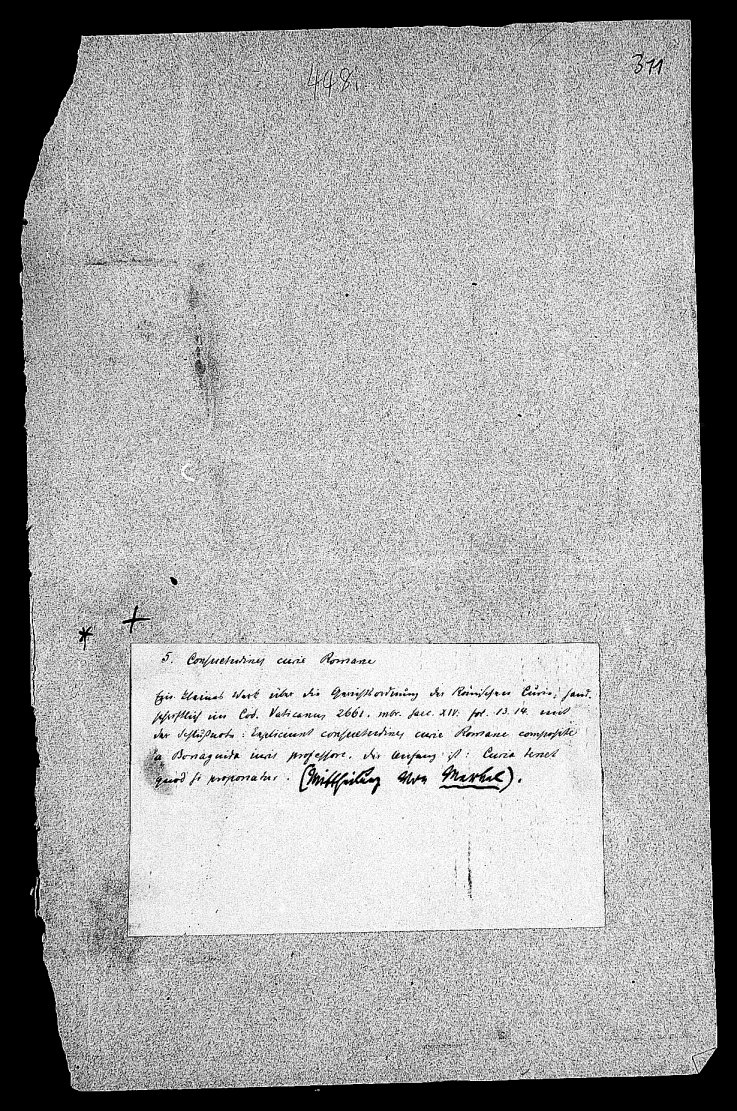 448.
311
* +
5. Consuetudines curie Romane
Ein kleines Werk über die Gerichtsordnung der Römischen Curie, hand-
schriftlich im Cod. Vaticanus 2661. mbr. saec. XIV. fol. 13. 14. mit
der Schlußnote: Expliciunt consuetudines curie Romane composite
a Bonaguida iuris professore. Der Anfang ist: Curia tenet
quod si proponatur. (Mittheilung von Merkel).